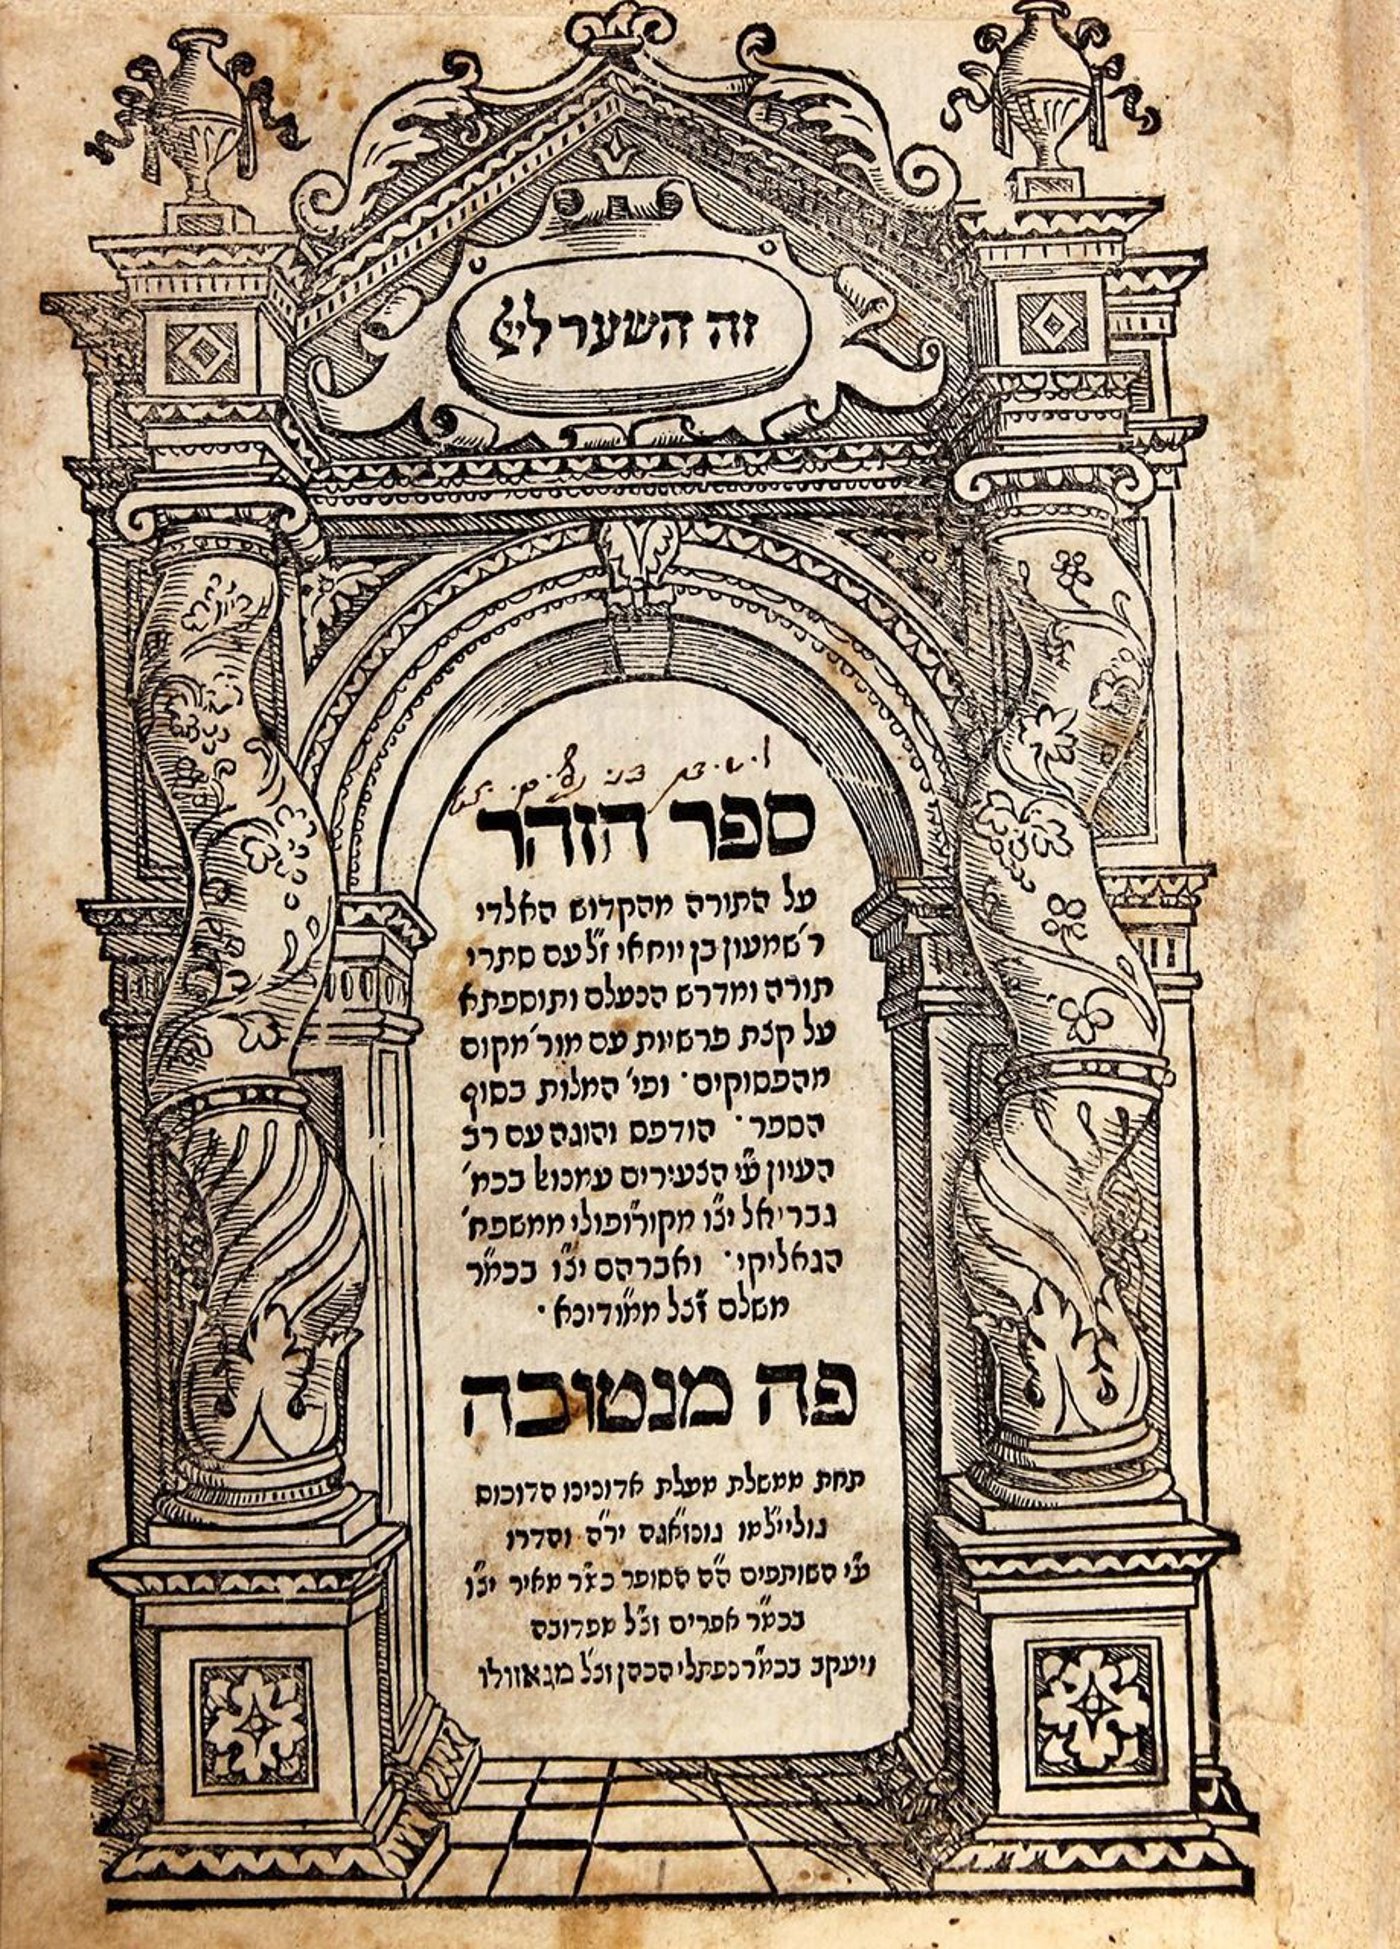 זה השער לייי
ספר הזהר
על התורה מהקדוש האלדי
ר' שמעון בן יוחאי ז"ל עם סתרי
תורה ומדרש הנעלם ותוספתא
על קצת פרשיות עם מור' מקום
מהפסוקים · ופי' המלות בסוף
הספר · הודפס והוגה עם רב
העיון ע"י הצעירים עמנואל בכמ'
גבריאל יצ"ו מקורופולי ממשפח'
הגאליקי · ואברהם יצ"ו בכמ"ר
משלם זצ"ל ממודינא ·
פה מנטובה
תחת ממשלת מעלת אדונינו הדוכוס
גולייילמו גונזאגה יר"ה וסדרו
ע"י השותפים ה"ה הסופר כמ"ר מאיר יצ"ו
בכמ"ר אפרים זצ"ל מפדובה
ויעקב בכמ"ר נפתלי הכהן זצ"ל מגאזולו